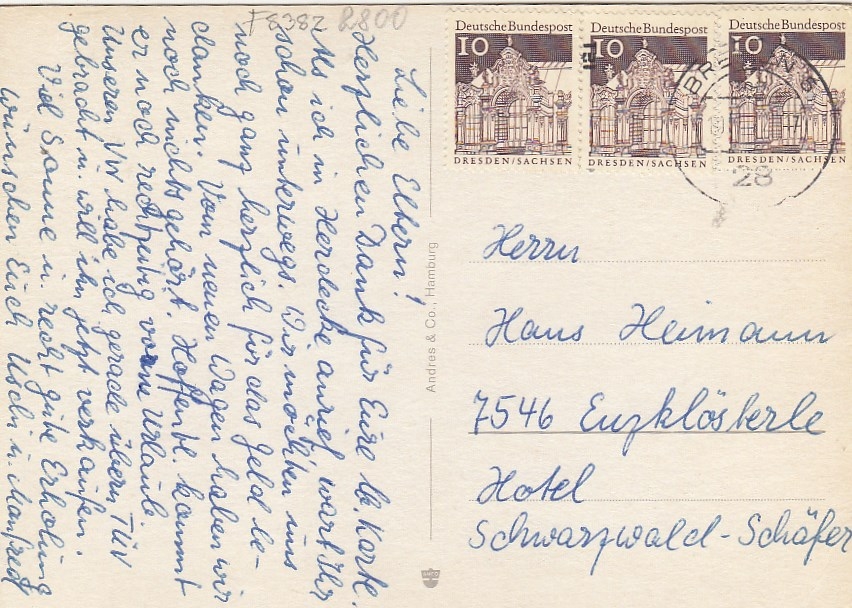 F8382 2800
Liebe Eltern!
Herzlichen Dank für Eure lb. Karte.
Als ich in Herdecke anrief, wart Ihr
schon unterwegs. Wir möchten uns
noch ganz herzlich für das Geld be-
danken. Vom neuen Wagen haben wir
noch nichts gehört. Hoffentl. kommt
er noch rechtzeitig vorm Urlaub.
Unseren VW habe ich gerade übern TÜV
gebracht u. will ihn jetzt verkaufen.
Viel Sonne u. recht gute Erholung
wünschen Euch Uschi u. Manfred
Andres & Co., Hamburg
Deutsche Bundespost
10
DRESDEN/SACHSEN
Deutsche Bundespost
10
DRESDEN/SACHSEN
Deutsche Bundespost
10
DRESDEN/SACHSEN
28
Herrn
Hans Heimann
7546 Enzklösterle
Hotel
Schwarzwald-Schäfer